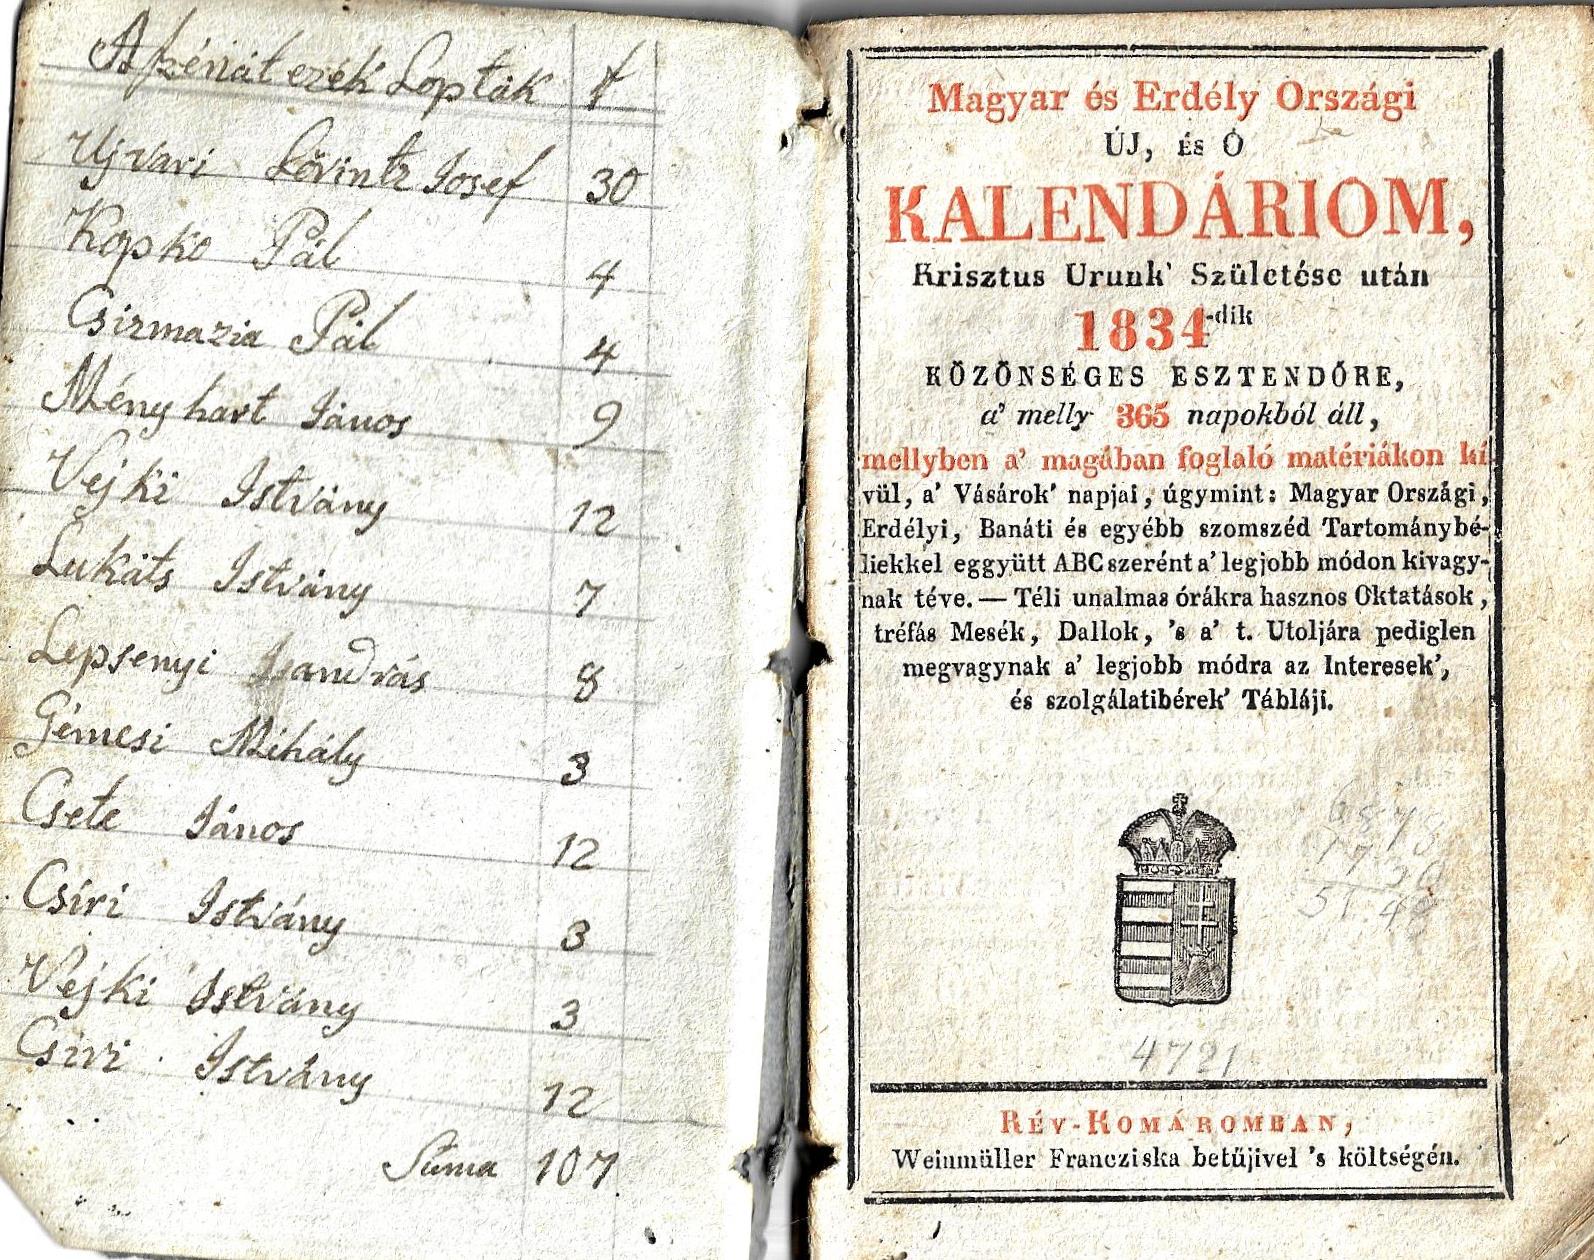 A szénát ezek Lopták f
Ujvari Lőrintz Josef 30
Kopko Pál 4
Csizmazia Pál 4
Ményhart János 9
Vejki Istvány 12
Lukáts Istvány 7
Lepsenyi András 8
Gémesi Mihály 3
Csete János 12
Csiri Istvány 3
Vejki Istvány 3
Csiri Istvány 12
Súma 107
Magyar és Erdély Országi
ÚJ, és Ó
KALENDÁRIOM,
Krisztus Urunk' Születése után
1834-dik
KÖZÖNSÉGES ESZTENDŐRE,
a' melly 365 napokból áll,
mellyben a' magában foglaló matériákon kí
vül, a' Vásárok' napjai, úgymint: Magyar Országi,
Erdélyi, Banáti és egyébb szomszéd Tartománybé-
liekkel eggyütt ABC szerént a' legjobb módon kivagy-
nak téve. — Téli unalmas órákra hasznos Oktatások,
tréfás Mesék, Dallok, 's a' t. Utoljára pediglen
megvagynak a' legjobb módra az Interesek',
és szolgálatibérek' Tábláji.
4721
Rév-Komáromban,
Weinmüller Francziska betűjivel 's költségén.